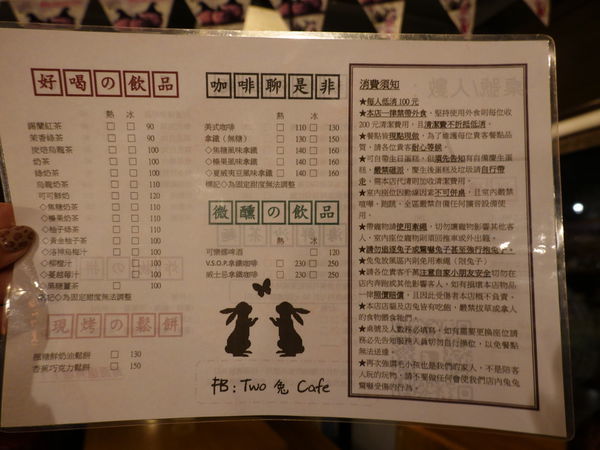 好喝の飲品
熱 冰
錫蘭紅茶 □ □ 90
茉香綠茶 □ □ 90
炭焙烏龍茶 □ □ 90
奶茶 □ □ 100
綠奶茶 □ □ 100
烏龍奶茶 □ □ 110
可可鮮奶 □ □ 120
◇焦糖奶茶 □ □ 110
◇榛果奶茶 □ □ 110
◇柚子綠茶 □ □ 110
◇黃金柚子茶 □ □ 110
◇洛神烏梅汁 □ □ 100
◇柳橙汁 □ □ 100
◇蔓越莓汁 □ □ 110
◇黑糖薑茶 □ 100
標記◇為固定甜度無法調整
現烤の鬆餅
楓糖鮮奶油鬆餅 □ 130
香蕉巧克力鬆餅 □ 150
咖啡聊是非
熱 冰
美式咖啡 □ 110 □ 110
拿鐵（無糖） □ 130 □ 130
◇焦糖風味拿鐵 □ 140 □ 140
◇榛果風味拿鐵 □ 140 □ 140
◇夏威夷豆風味拿鐵 □ 160 □ 160
標記◇為固定甜度無法調整
微醺の飲品
熱 冰
可樂娜啤酒 □ 120
V.S.O.P.拿鐵咖啡 □ 230 □ 250
威士忌拿鐵咖啡 □ 230 □ 250
FB:Two 兔 Cafe
消費須知
★每人低消100元
★本店一律禁帶外食，堅持使用外食則每位收
200元清潔費用，且清潔費不折抵低消。
★餐點皆現點現做，為了維護每位貴客餐點品
質，請各位貴客耐心等候。
★可自帶生日蛋糕，但須先告知有自備慶生蛋
糕，嚴禁砸派，慶生後蛋糕及垃圾請自行帶
走，需本店代清則加收清潔費用。
★室內座位因動線因素不可併桌，且室內嚴禁
喧嘩、跑跳，全區嚴禁自備任何擴音設備使
用。
★帶寵物請使用牽繩，切勿讓寵物影響其他客
人，室內座位寵物則須回推車或外出籠。
★請勿追逐兔子或驚嚇兔子甚至強行抱兔子。
★兔兔放風區內則免使用牽繩（限兔子）
★請各位貴客千萬注意自家小朋友安全切勿在
店內奔跑或其他影響客人，如有損壞本店物品一
律照價賠償，且因此受傷者本店概不負責。
★本店店貓及店兔皆有吃飽，嚴禁拔草或拿人
的食物餵食牠們。
★桌號及人數務必填寫，如有需要更換座位請
務必先告知服務人員切勿自行換位，以免餐點
無法送達。
★再次強調毛小孩也是我們的家人，不是陪客
人玩的玩物，請不要做任何會使我們店內兔兔
驚嚇受傷的行為。